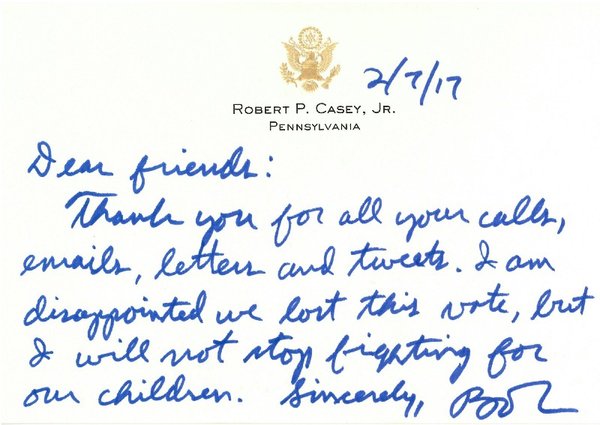 2/7/17
ROBERT P. CASEY, JR.
PENNSYLVANIA
Dear friends:
Thank you for all your calls,
emails, letters and tweets. I am
disappointed we lost this vote, but
I will not stop fighting for
our children. Sincerely, Bob